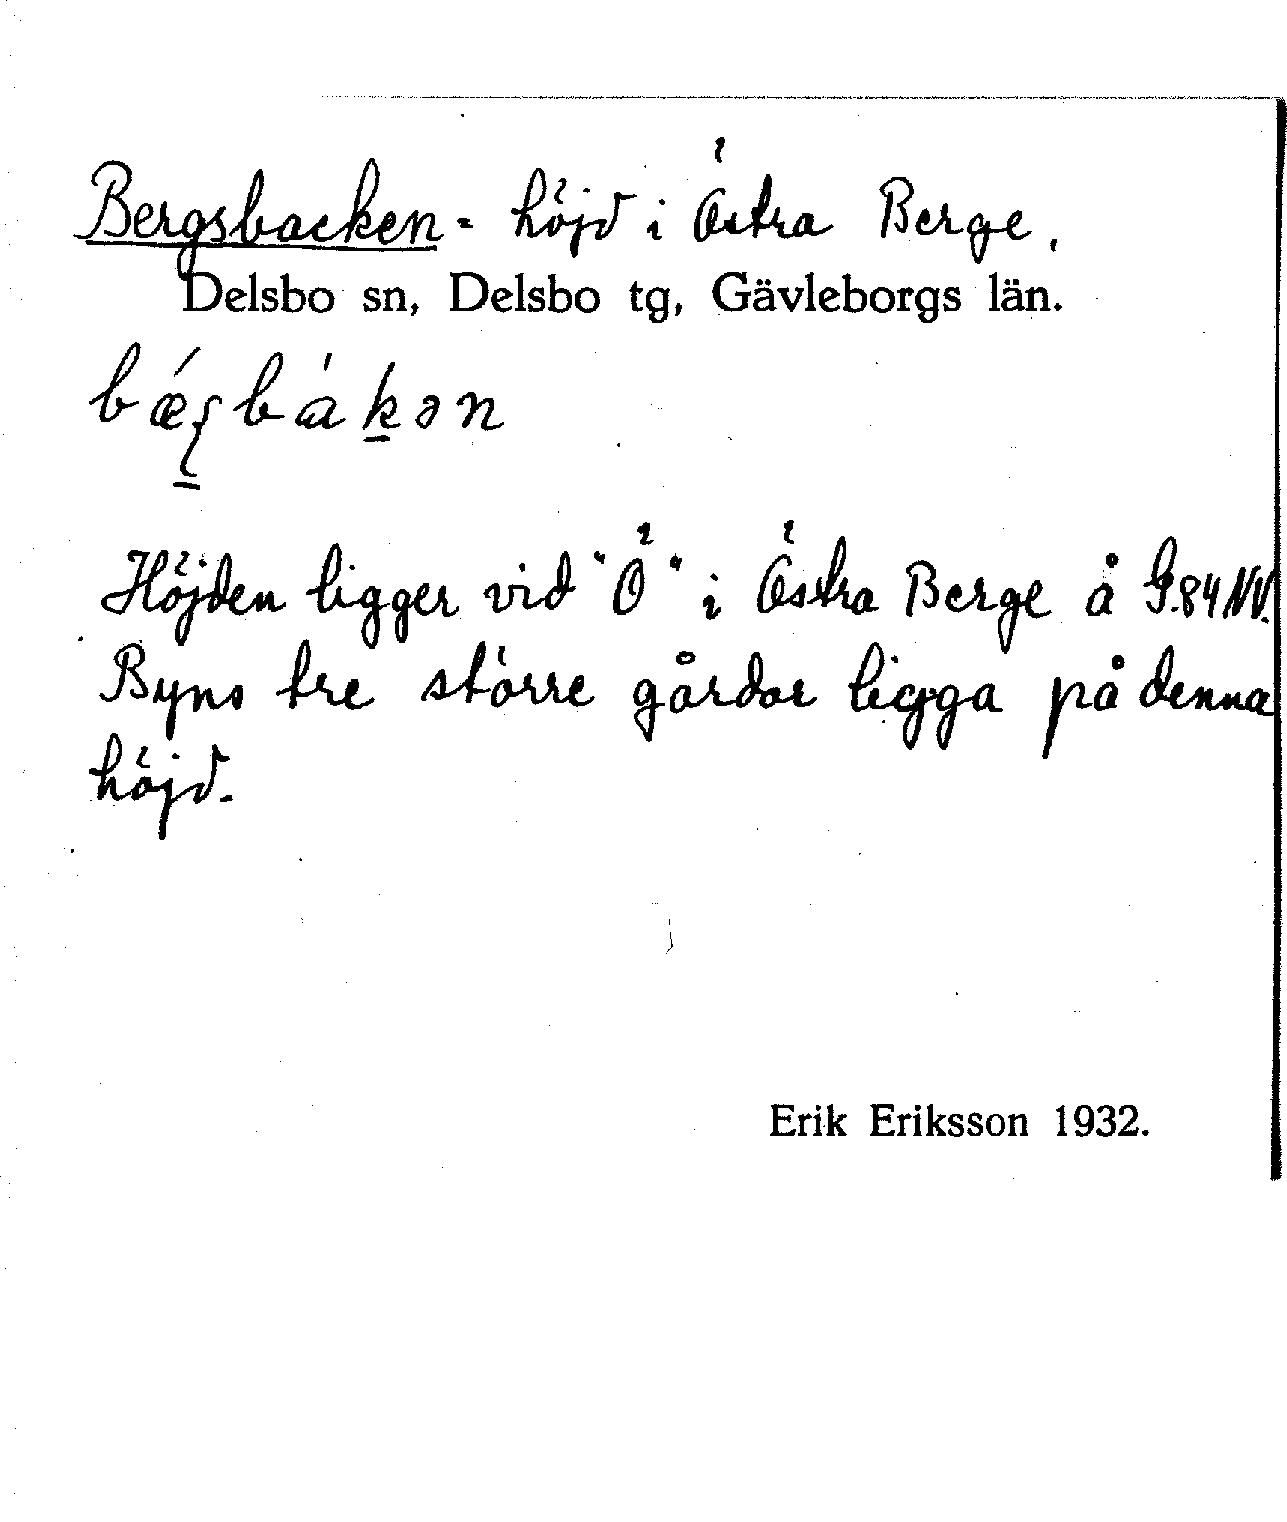 Bergsbacken = höjd i Östra Berge.
Delsbo sn, Delsbo tg, Gävleborgs län.
Höjden ligger vid "Ö" i Östra Berge å G.84 NV.
Byns tre större gårdar ligga på denna
höjd.
Erik Eriksson 1932.